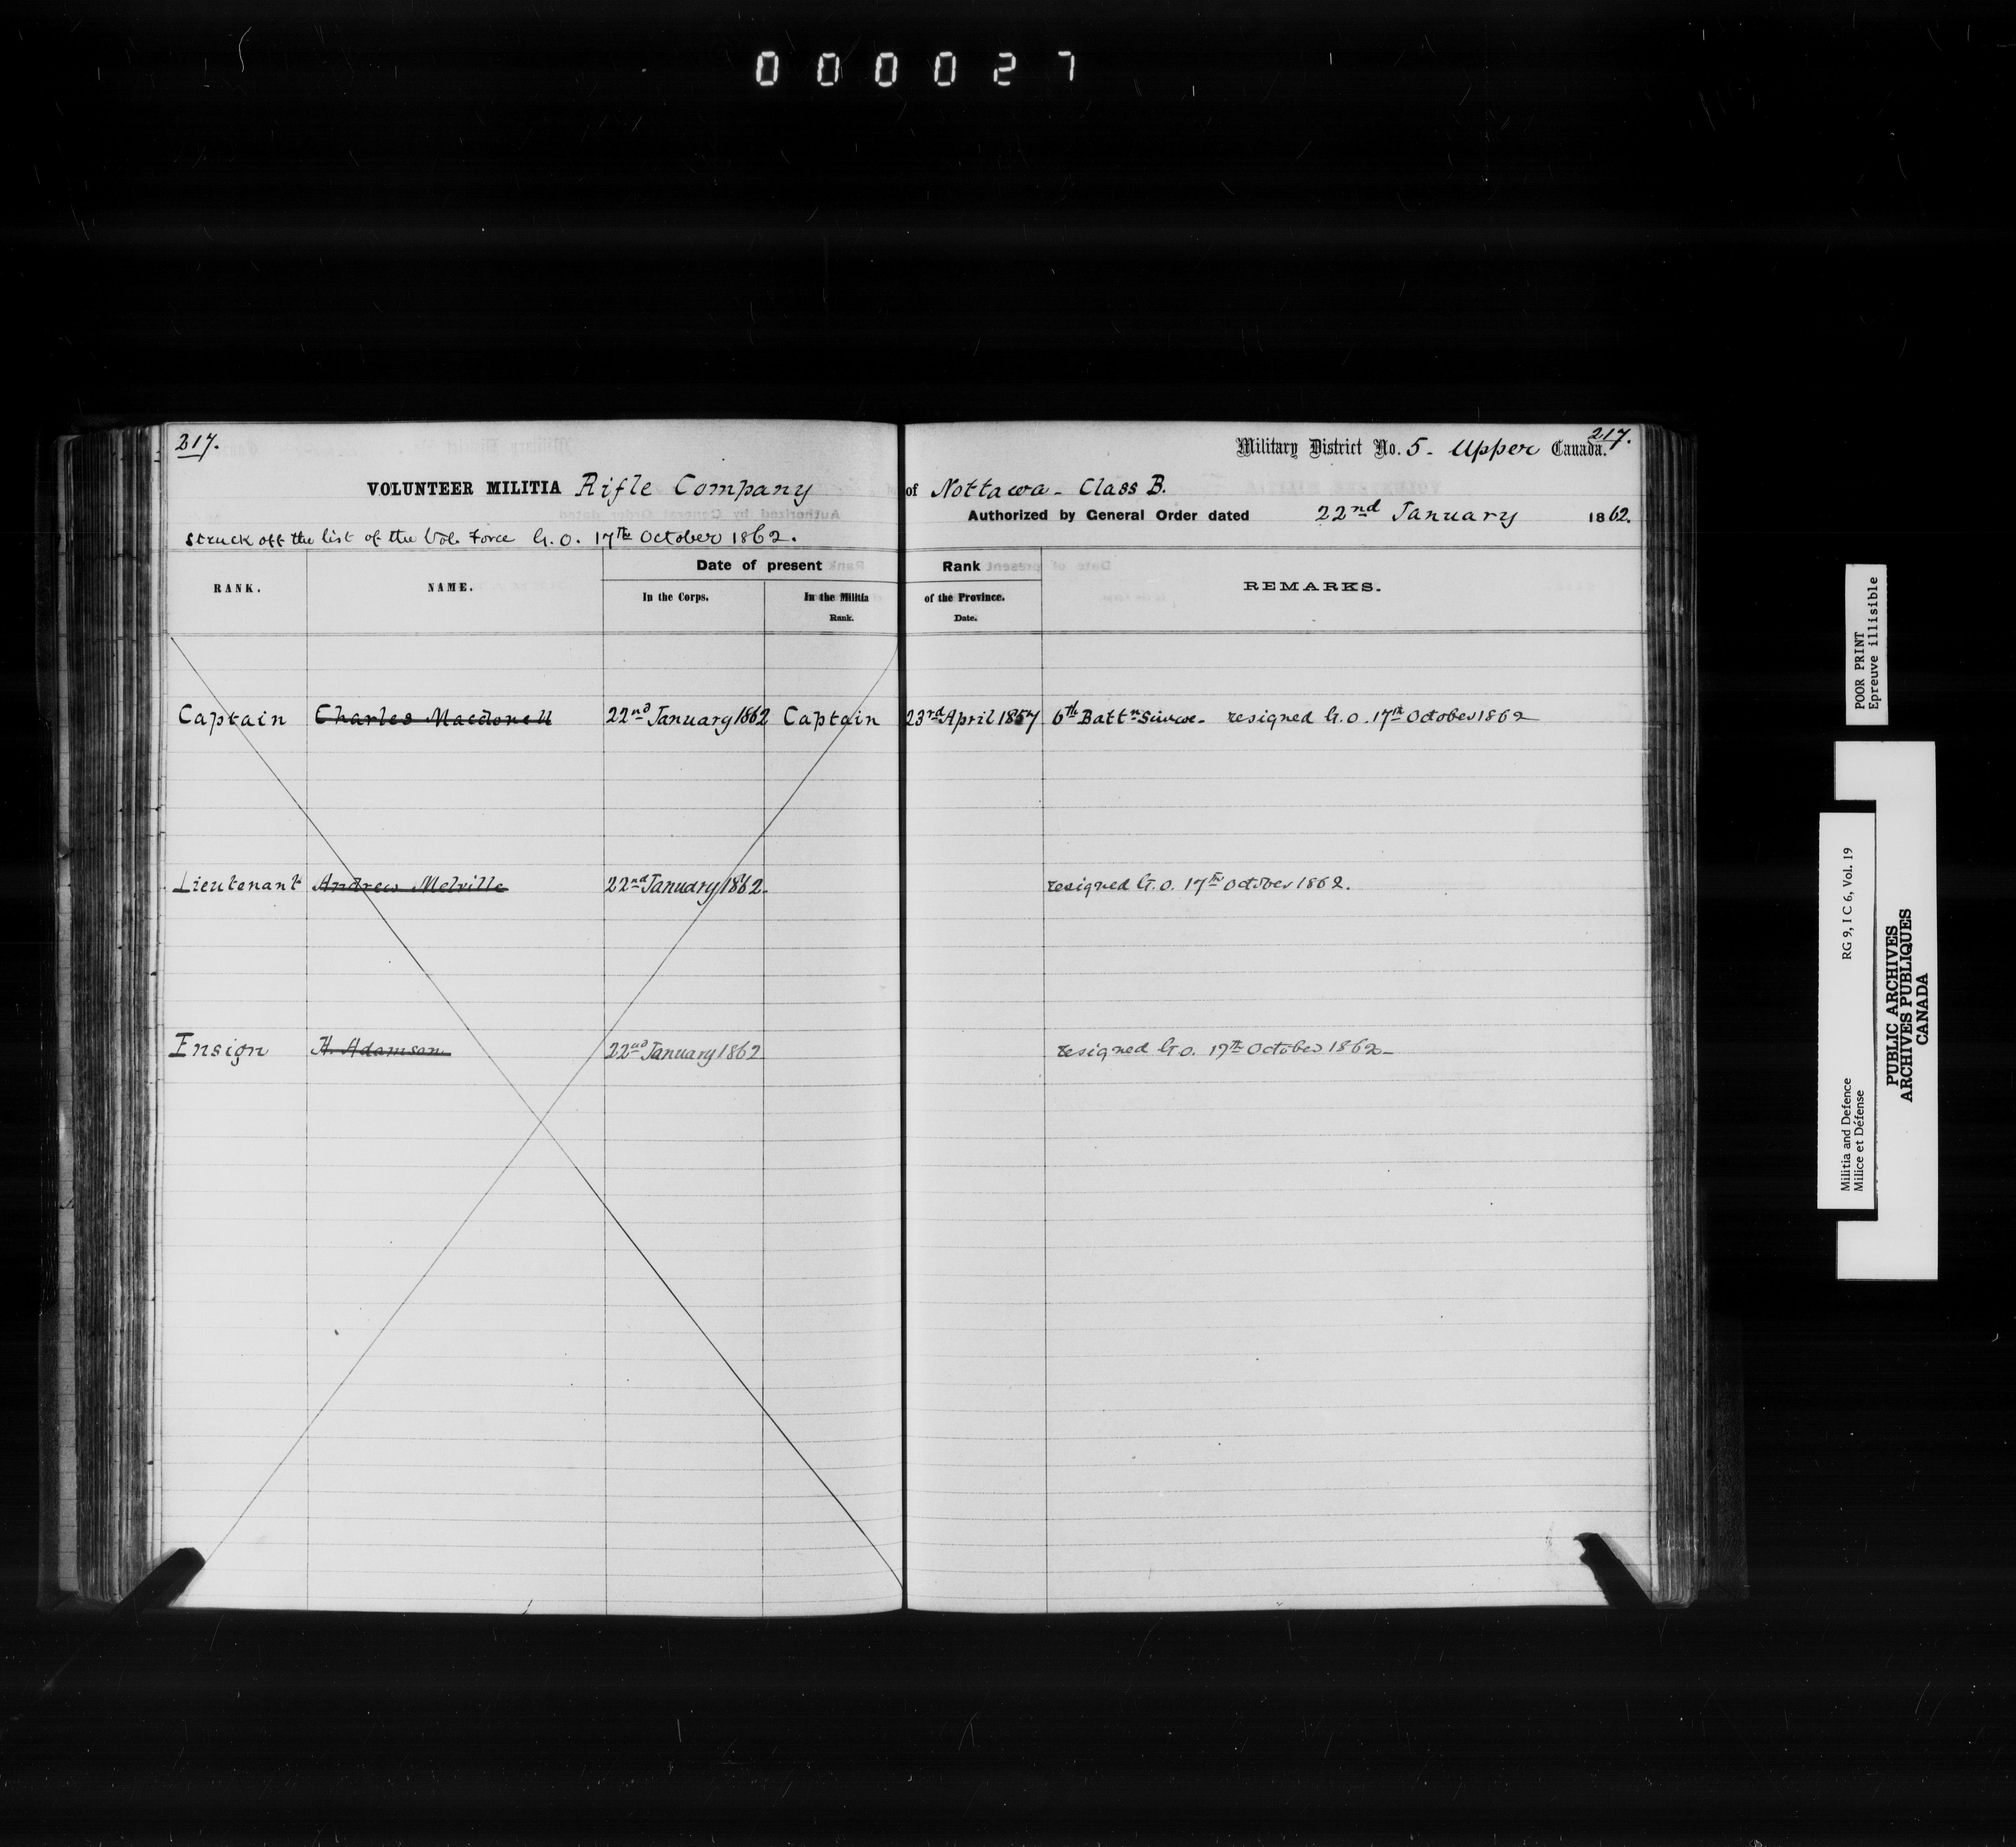 000027
217.
217.
Military District No. 5 - Upper Canada.
VOLUNTEER MILITIA Rifle Company of Nottawa - Class B.
Authorized by General Order dated 22nd January 1862.
Struck off the list of the Vol. Force G.O. 17th October 1862.
RANK. NAME. Date of present Rank REMARKS.
In the Corps. In the Militia of the Province.
Rank. Date.
Captain Charles Macdonell 22nd January 1862 Captain 23rd April 1857 6th Battn Simcoe - resigned G.O. 17th October 1862
Lieutenant Andrew Melville 22nd January 1862. resigned G.O. 17th October 1862.
Ensign H. Adamson 22nd January 1862 resigned G.O. 17th October 1862 -
POOR PRINT
Epreuve illisible
Militia and Defence RG 9, I C 6, Vol. 19
Milice et Défense
PUBLIC ARCHIVES
ARCHIVES PUBLIQUES
CANADA